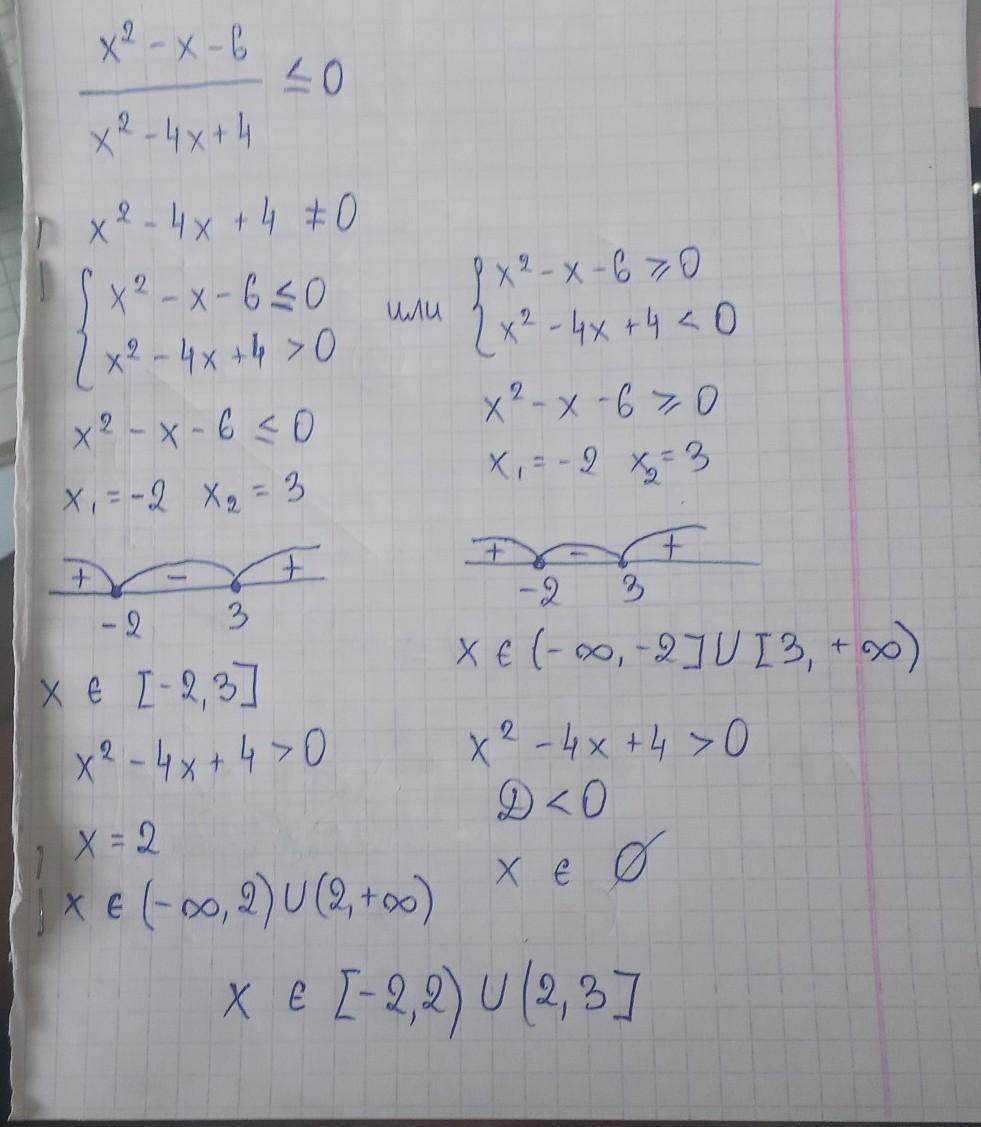 x² - x - 6
x² - 4x + 4
≤ 0
x² - 4x + 4 ≠ 0
{ x² - x - 6 ≤ 0
x² - 4x + 4 > 0
или
{ x² - x - 6 ⩾ 0
x² - 4x + 4 < 0
x² - x - 6 ≤ 0
x₁ = -2 x₂ = 3
+ - +
-2 3
x ∈ [-2,3]
x² - 4x + 4 > 0
x = 2
x ∈ (-∞, 2) ∪ (2, +∞)
x² - x - 6 ⩾ 0
x₁ = -2 x₂ = 3
+ - +
-2 3
x ∈ (-∞, -2] ∪ [3, +∞)
x² - 4x + 4 > 0
D < 0
x ∈ ∅
x ∈ [-2,2) ∪ (2,3]